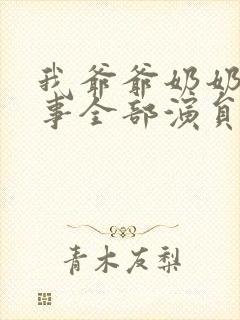 我爷爷奶奶
事全部演员
青木友梨